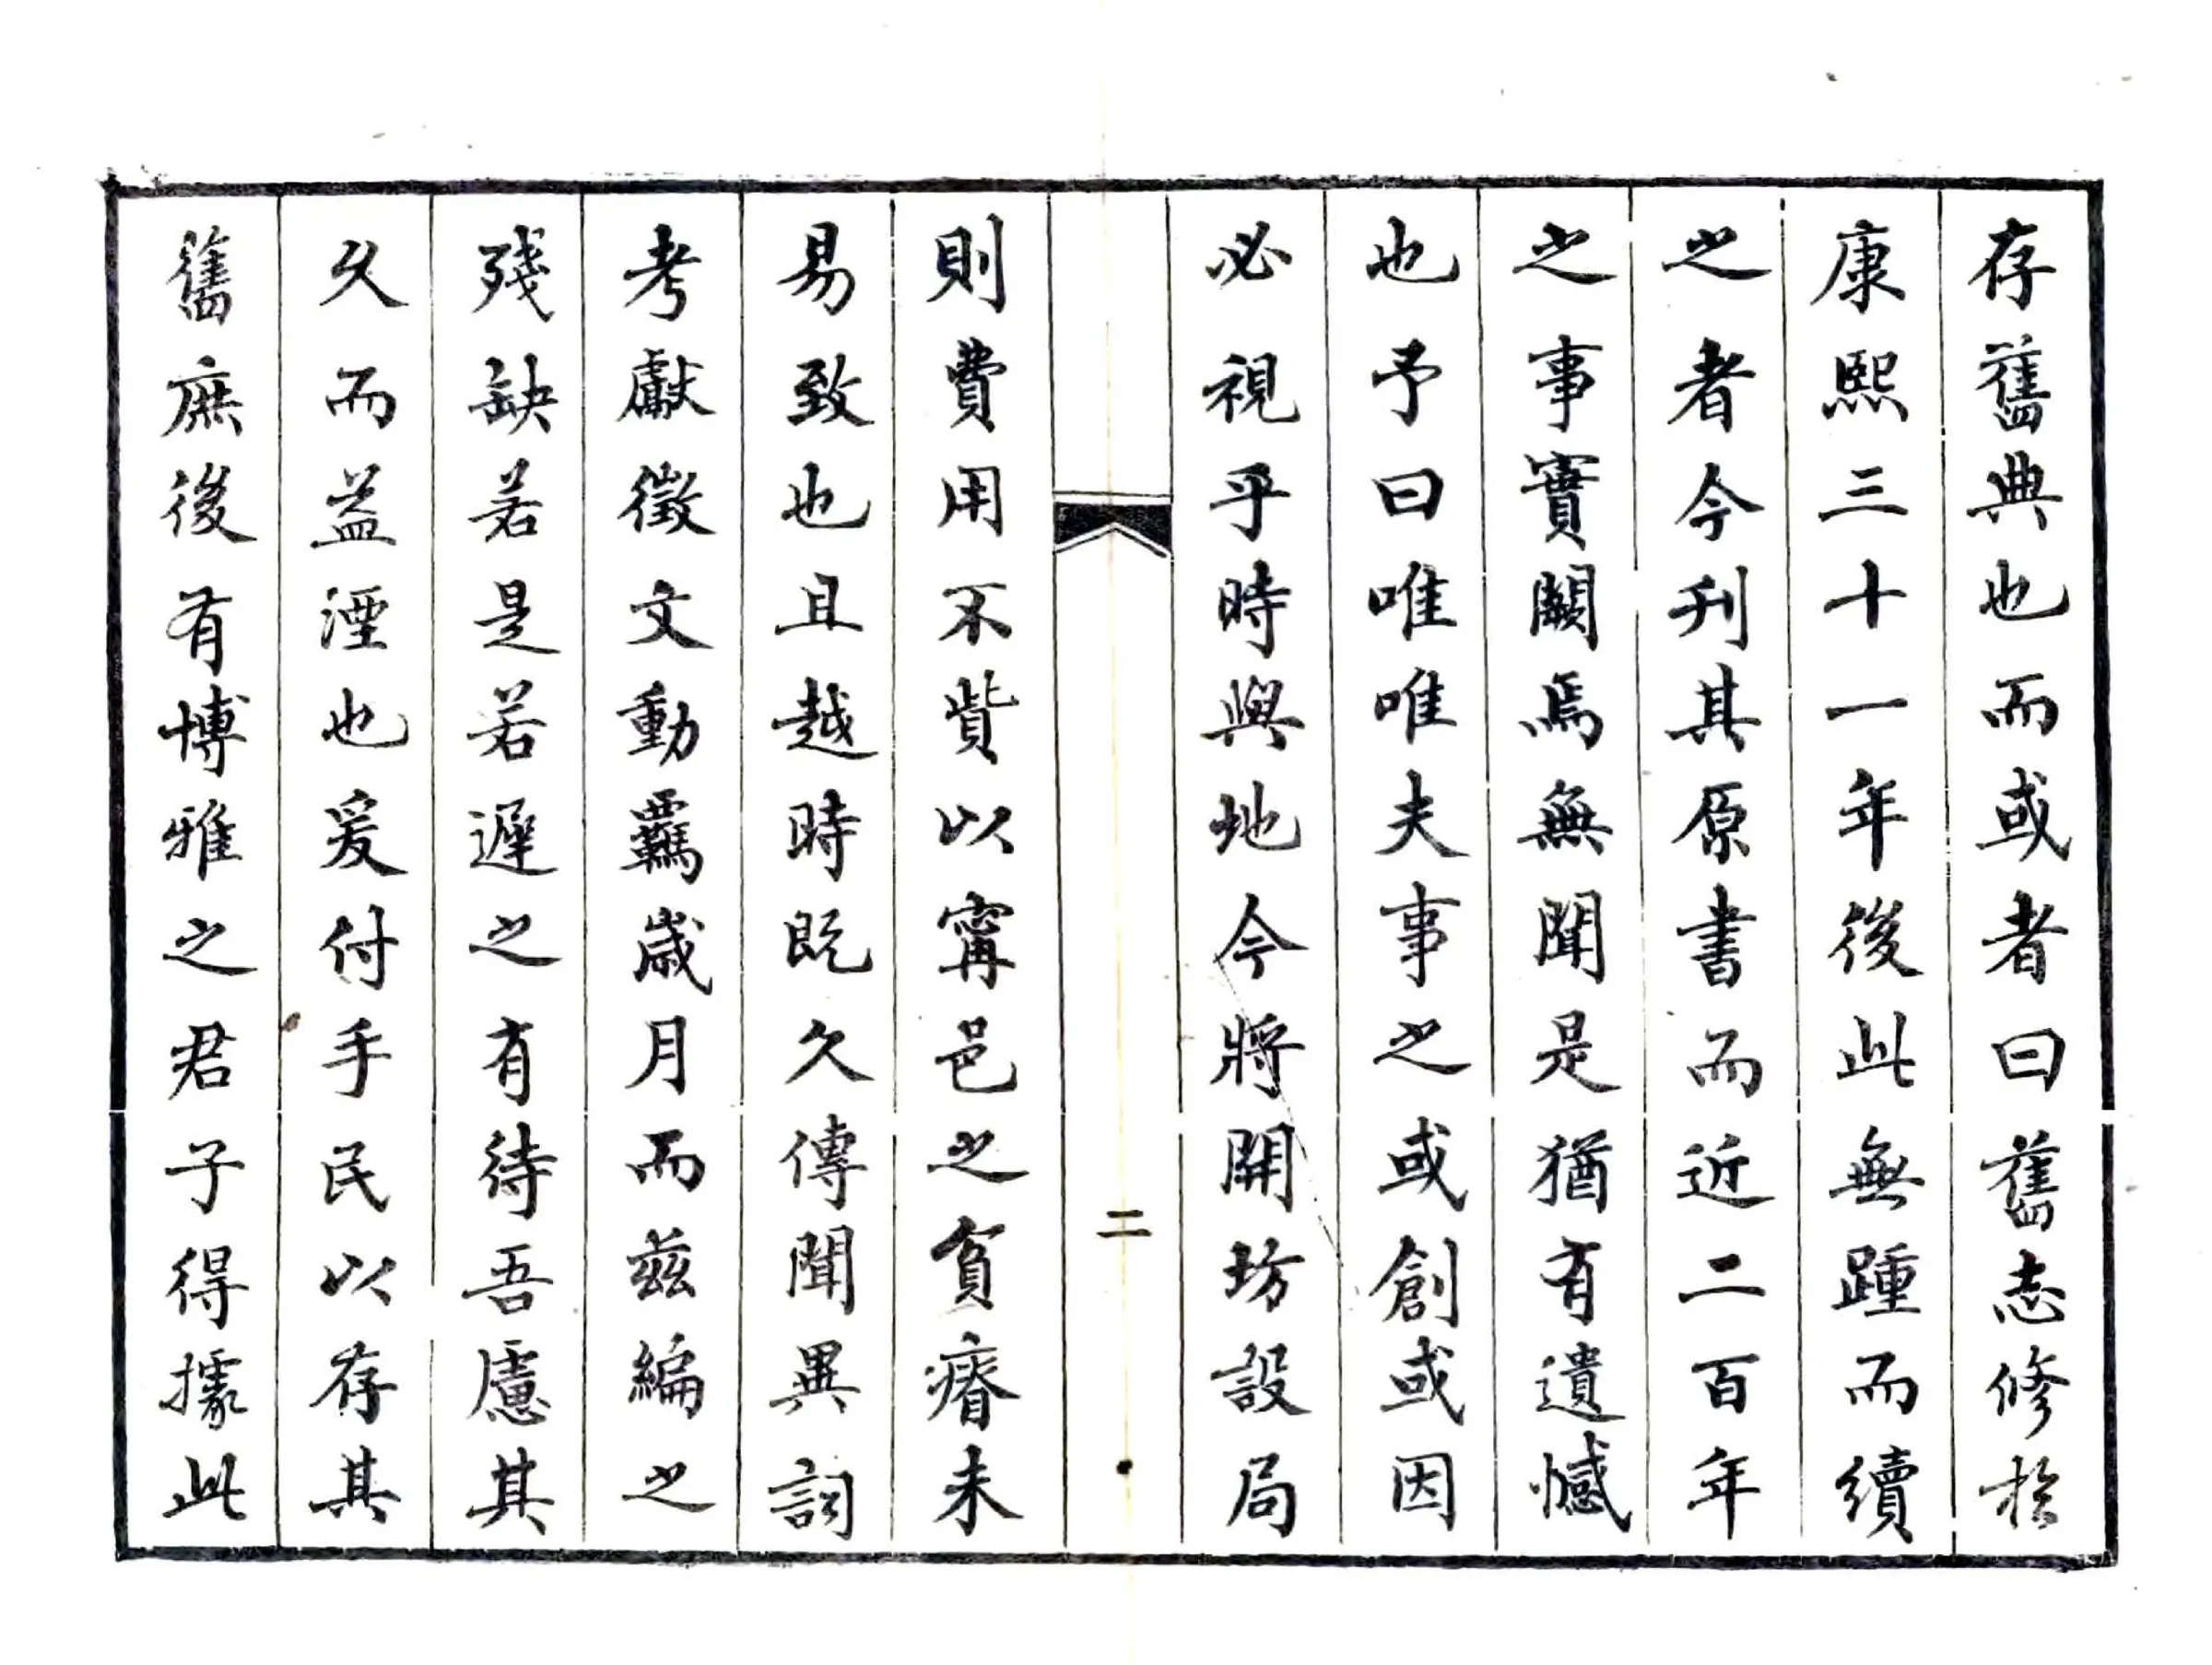 存舊典也而或者曰舊志修於
康熙三十一年後此無踵而續
之者今刊其原書而近二百年
之事實闕焉無聞是猶有遺憾
也予曰唯唯夫事之或創或因
必視乎時與地今將開坊設局
二
則費用不貲以甯邑之貧瘠未
易致也且越時既久傳聞異詞
考獻徵文動羈歲月而茲編之
殘缺若是若遲之有待吾慮其
久而益湮也爰付手民以存其
舊庶後有博雅之君子得據此